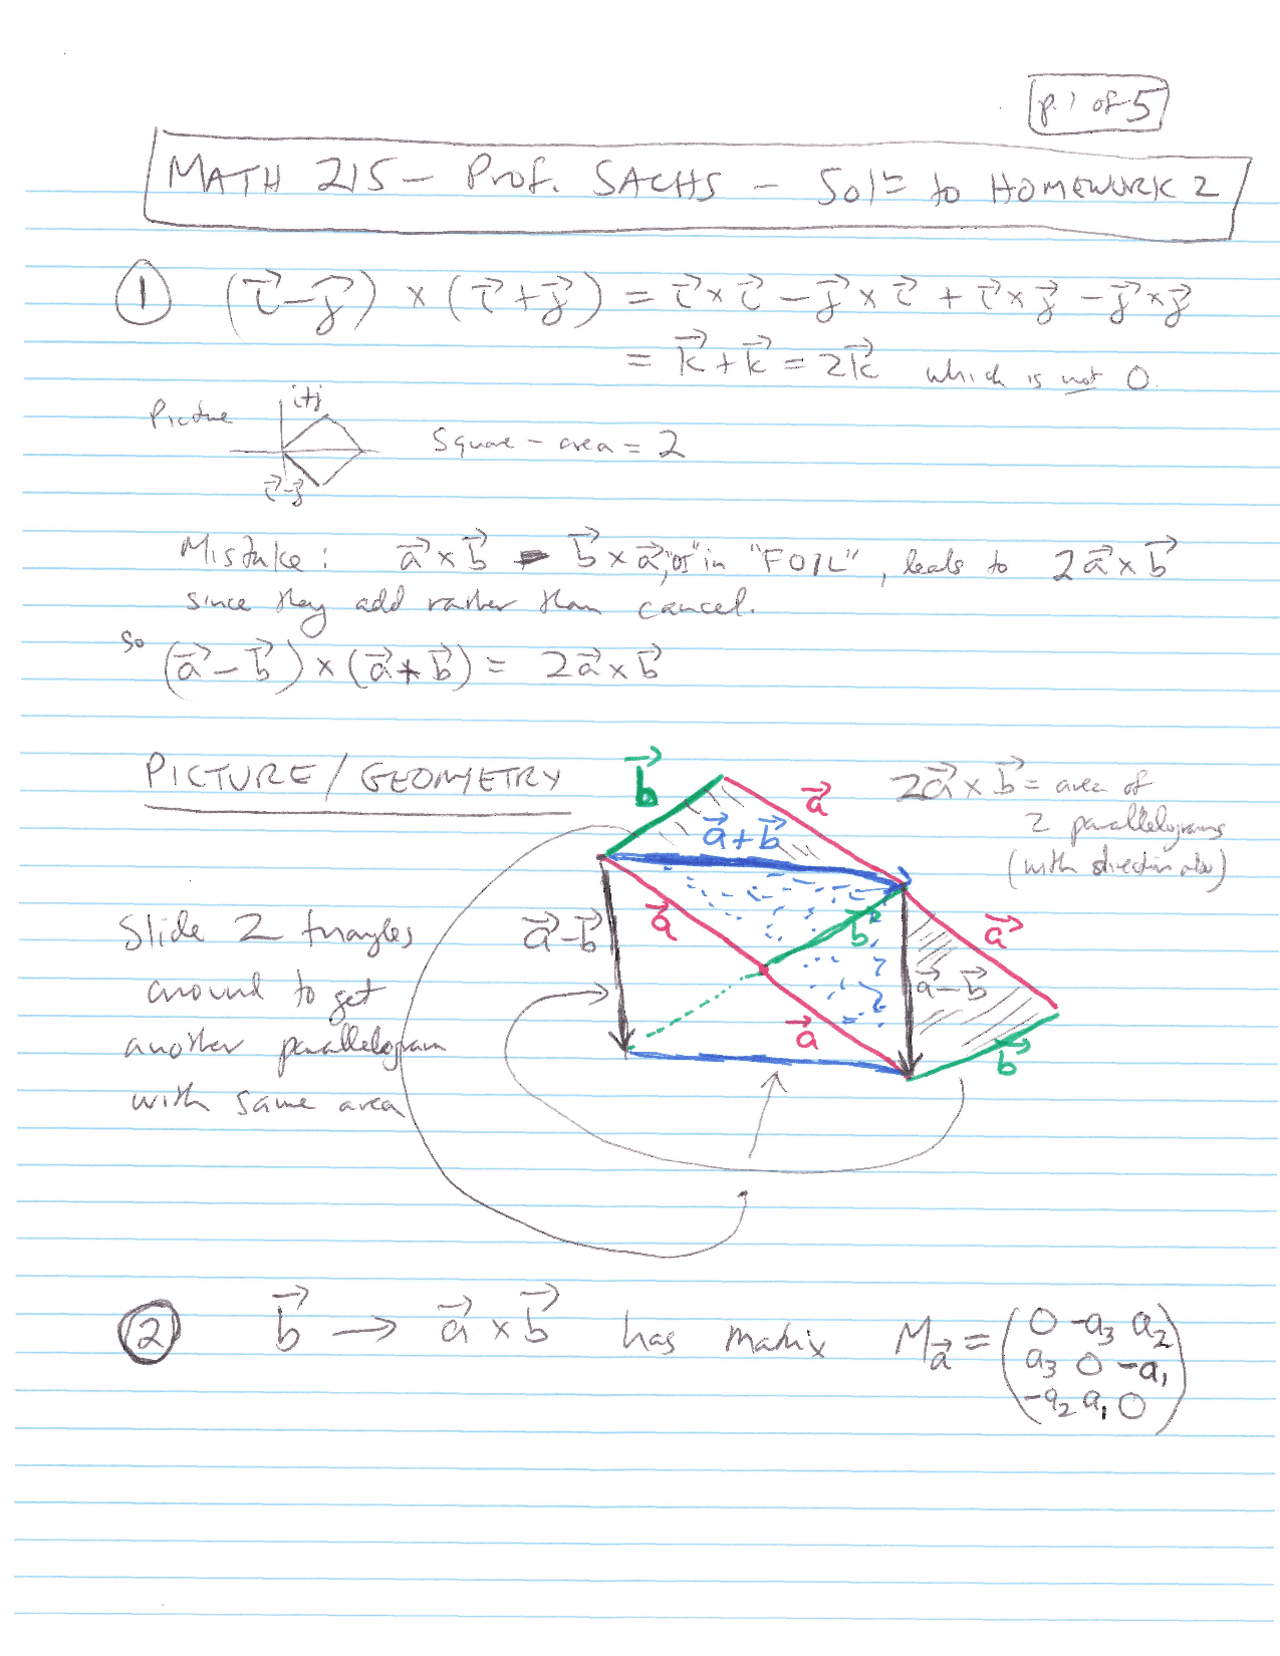 p. 1 of 5
MATH 215 – Prof. SACHS – Sol<sup>n</sup> to HOMEWORK 2
① (i⃗ – j⃗) × (i⃗ + j⃗) = i⃗ × i⃗ – j⃗ × i⃗ + i⃗ × j⃗ – j⃗ × j⃗
= k⃗ + k⃗ = 2k⃗ which is not 0.
Picture
i+j
i⃗-j⃗
Square – area = 2
Mistake: a⃗ × b⃗ – b⃗ × a⃗, "in "FOIL", leads to 2a⃗ × b⃗
since they add rather than cancel.
so (a⃗ – b⃗) × (a⃗ + b⃗) = 2a⃗ × b⃗
PICTURE / GEOMETRY
b⃗
a⃗
a⃗ + b⃗
2a⃗ × b⃗ = area of
2 parallelograms
(with direction also)
Slide 2 triangles
around to get
another parallelogram
with same area
a⃗ – b⃗
a⃗
b⃗
a⃗
a⃗ – b⃗
a⃗
b⃗
② b⃗ → a⃗ × b⃗ has matrix M<sub>a⃗</sub> = ( 0 -a₃ a₂
a₃ 0 -a₁
-a₂ a₁ 0 )